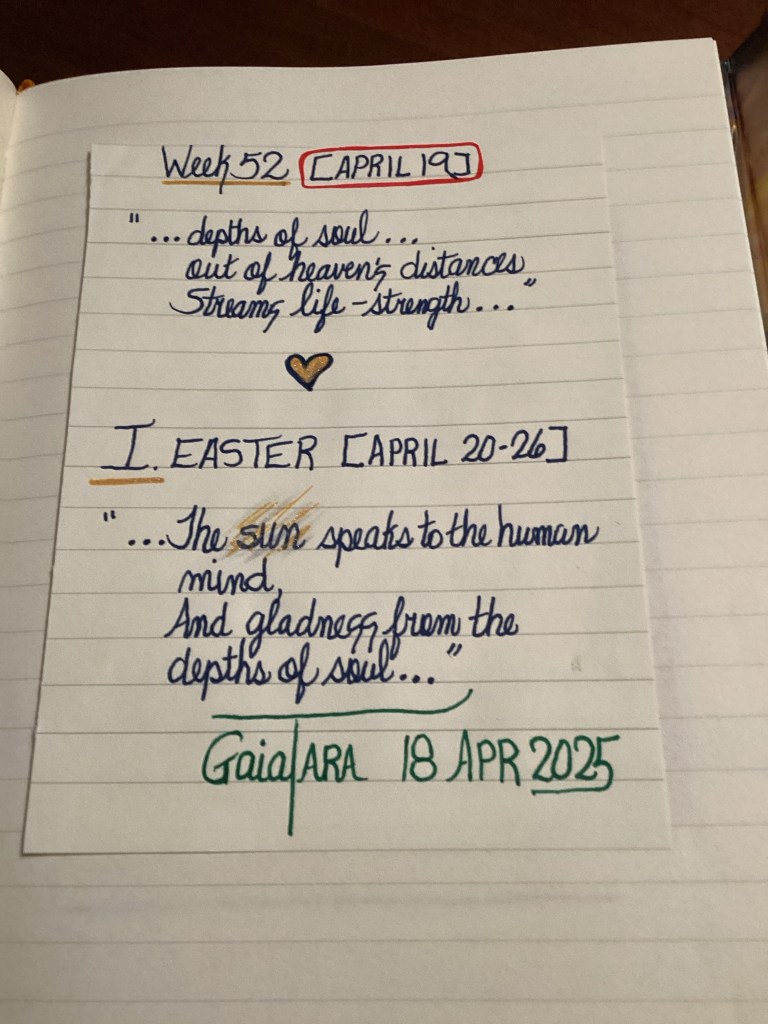 Week 52 [APRIL 19]
"...depths of soul...
out of heaven's distances
Streams life-strength..."
I. EASTER [APRIL 20-26]
"...The sun speaks to the human
mind,
And gladness from the
depths of soul..."
Gaia/ARA 18 APR 2025